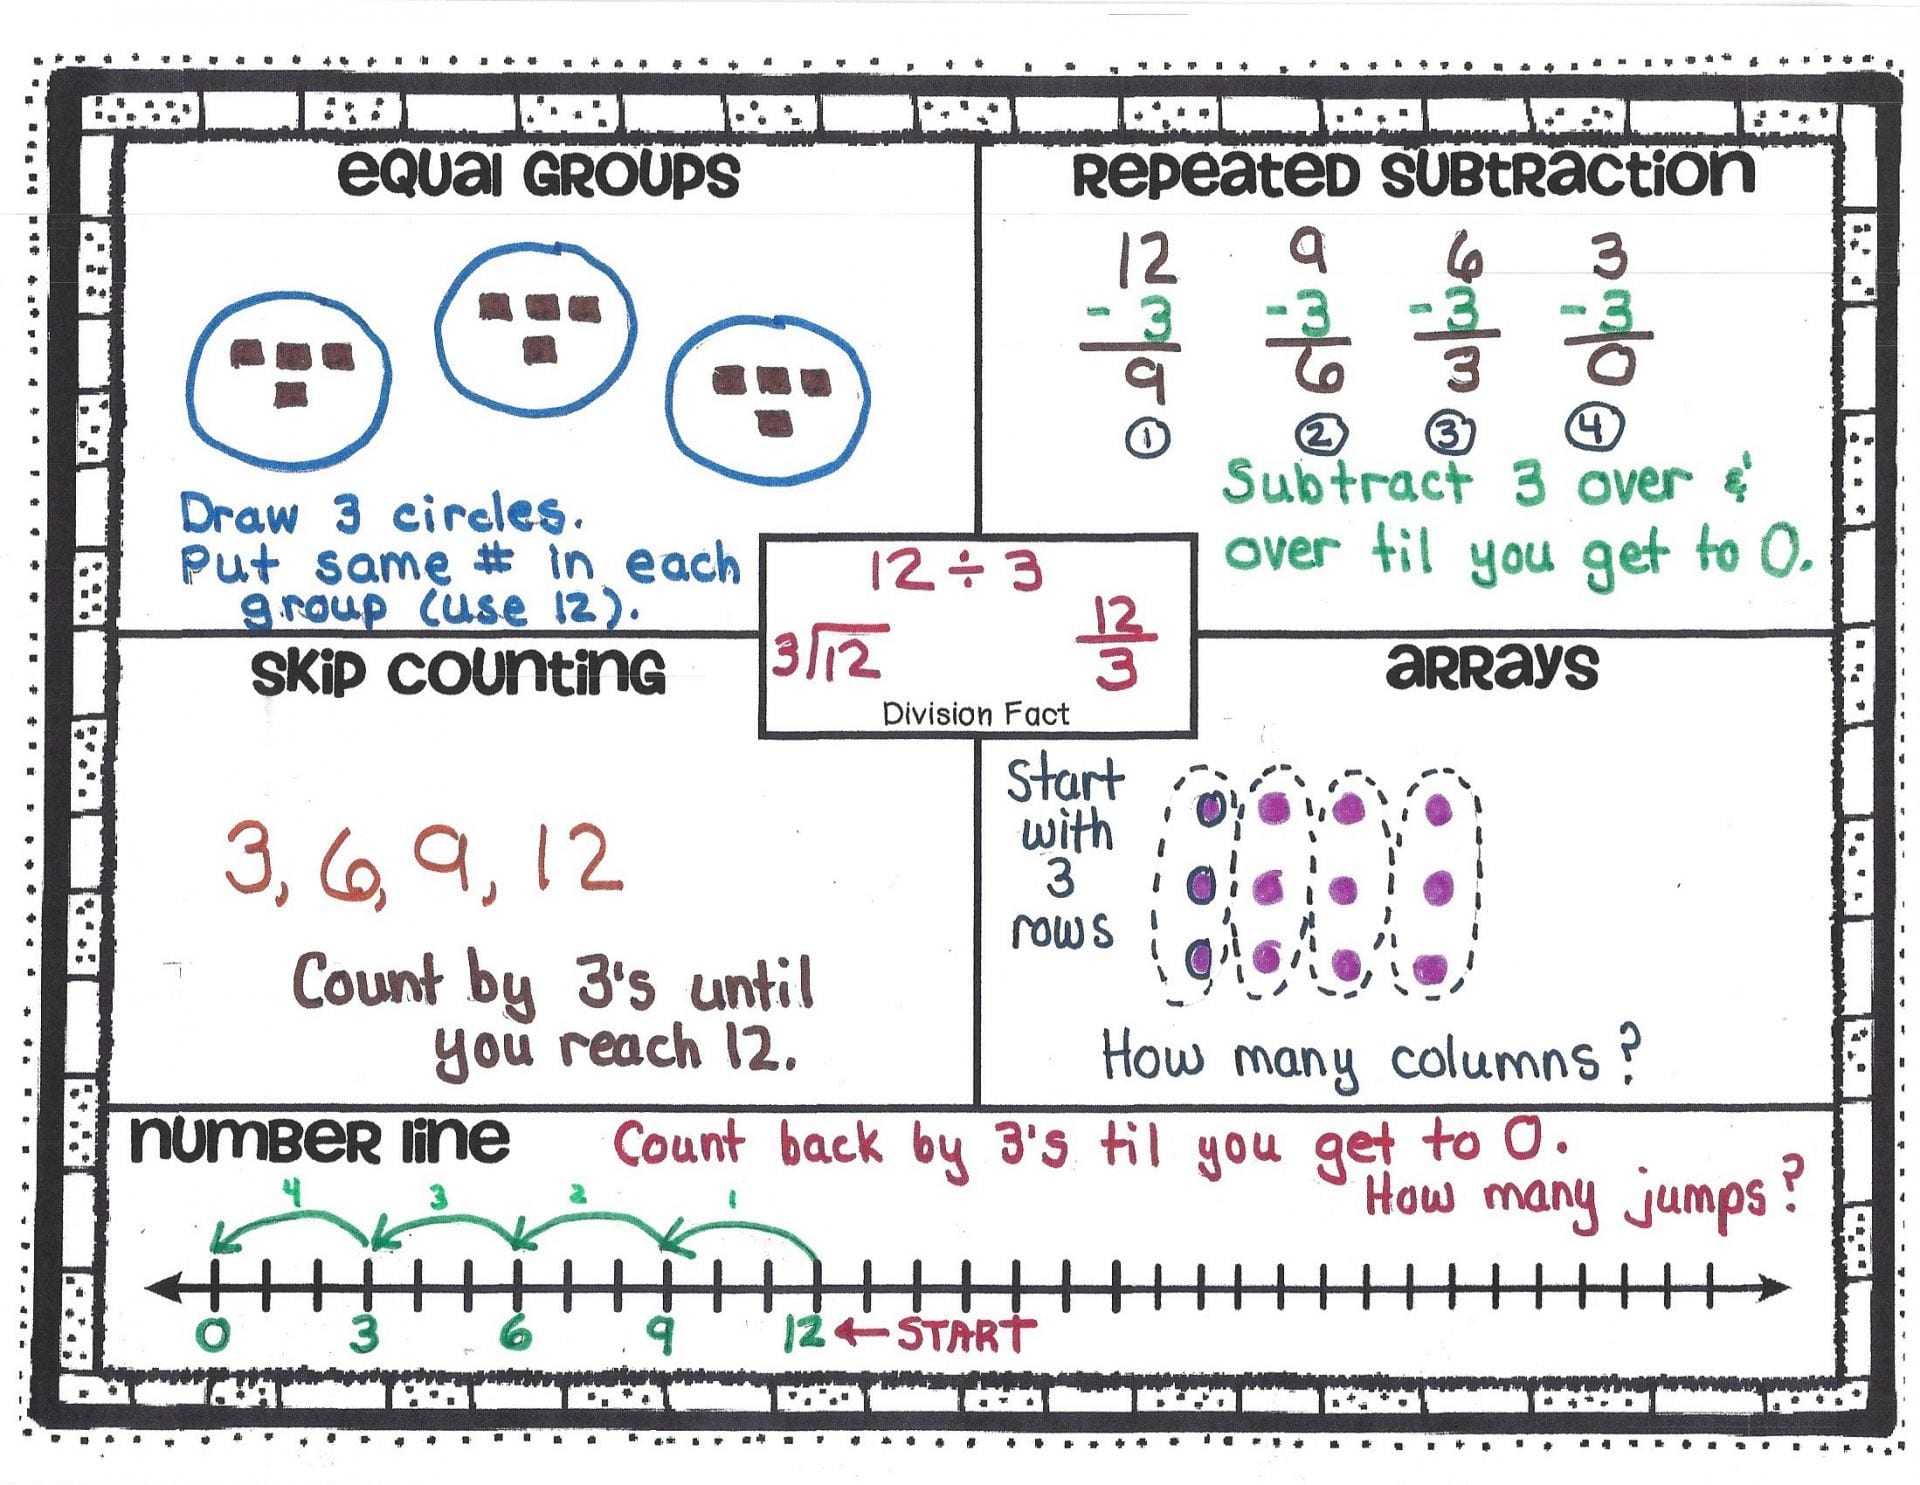 EQUAL GROUPS
Draw 3 circles.
Put same # in each
group (use 12).
REPEATED SUBTRACTION
12 9 6 3
- 3 -3 -3 -3
9 6 3 0
① ② ③ ④
Subtract 3 over &
over til you get to 0.
12 ÷ 3
3)12
12
3
Division Fact
SKIP COUNTING
3, 6, 9, 12
Count by 3's until
you reach 12.
ARRAYS
Start
with
3
rows
How many columns?
NUMBER LINE
Count back by 3's til you get to 0.
How many jumps?
4 3 2 1
0 3 6 9 12 ← START